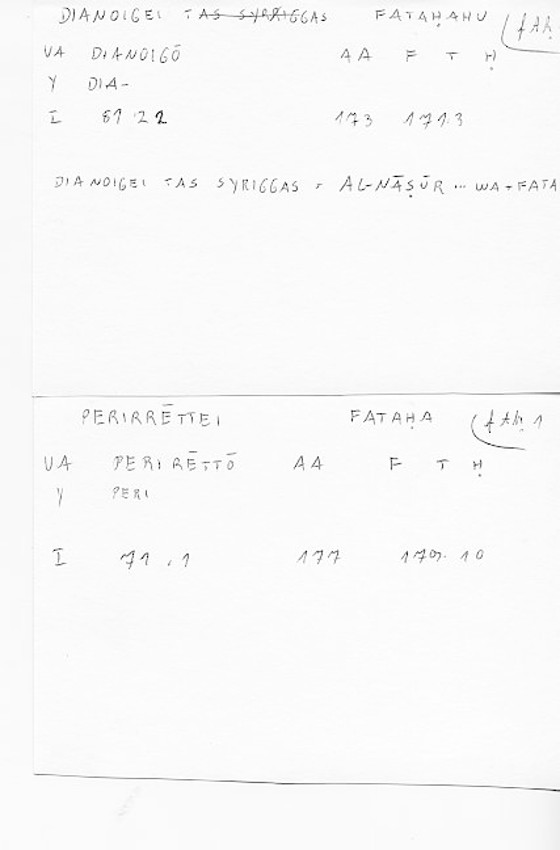 DIANOIGEI TAS SYRIGGAS FATAḤAHU fAḤ
VA DIANOIGŌ AA F T Ḥ
Y DIA-
I 81 22 173 171.3
DIANOIGEI TAS SYRIGGAS = AL-NĀṢŪR ... WA-FATA
PERIRRĒTTEI FATAḤA fAḤ 1
VA PERIRĒTTŌ AA F T Ḥ
Y PERI
I 71.1 177 179.10